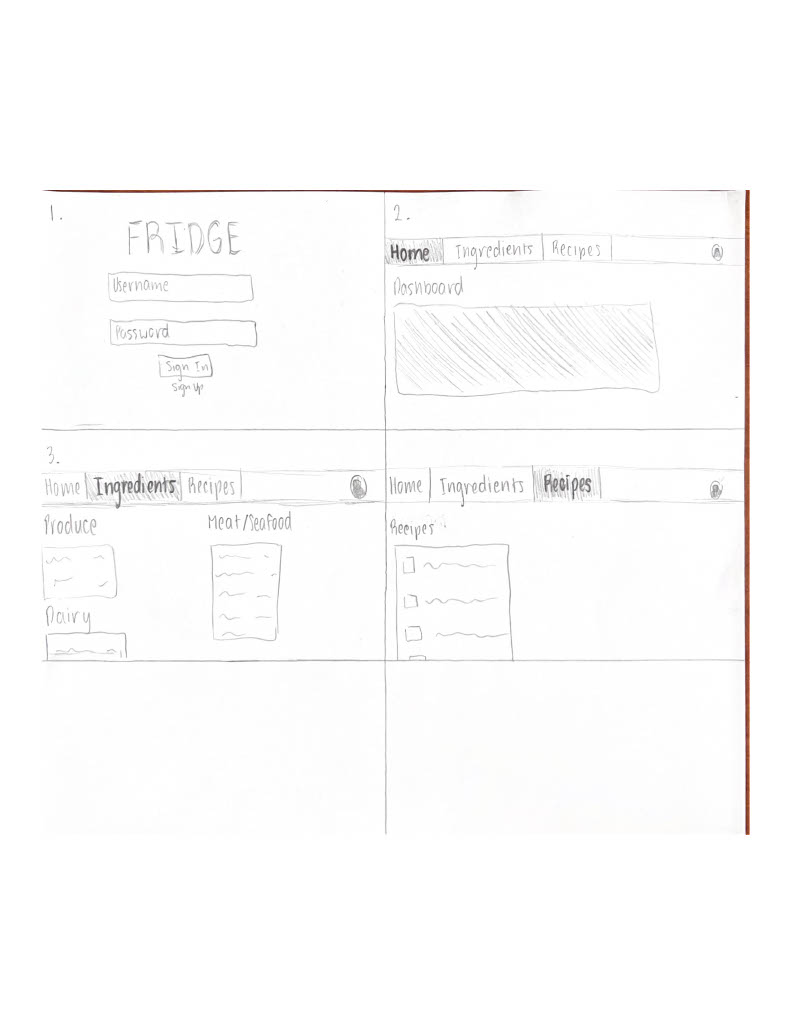 1.
FRIDGE
Username
Password
Sign In
Sign Up
2.
Home Ingredients Recipes
Dashboard
3.
Home Ingredients Recipes
Produce Meat/Seafood
Dairy
Home Ingredients Recipes
Recipes